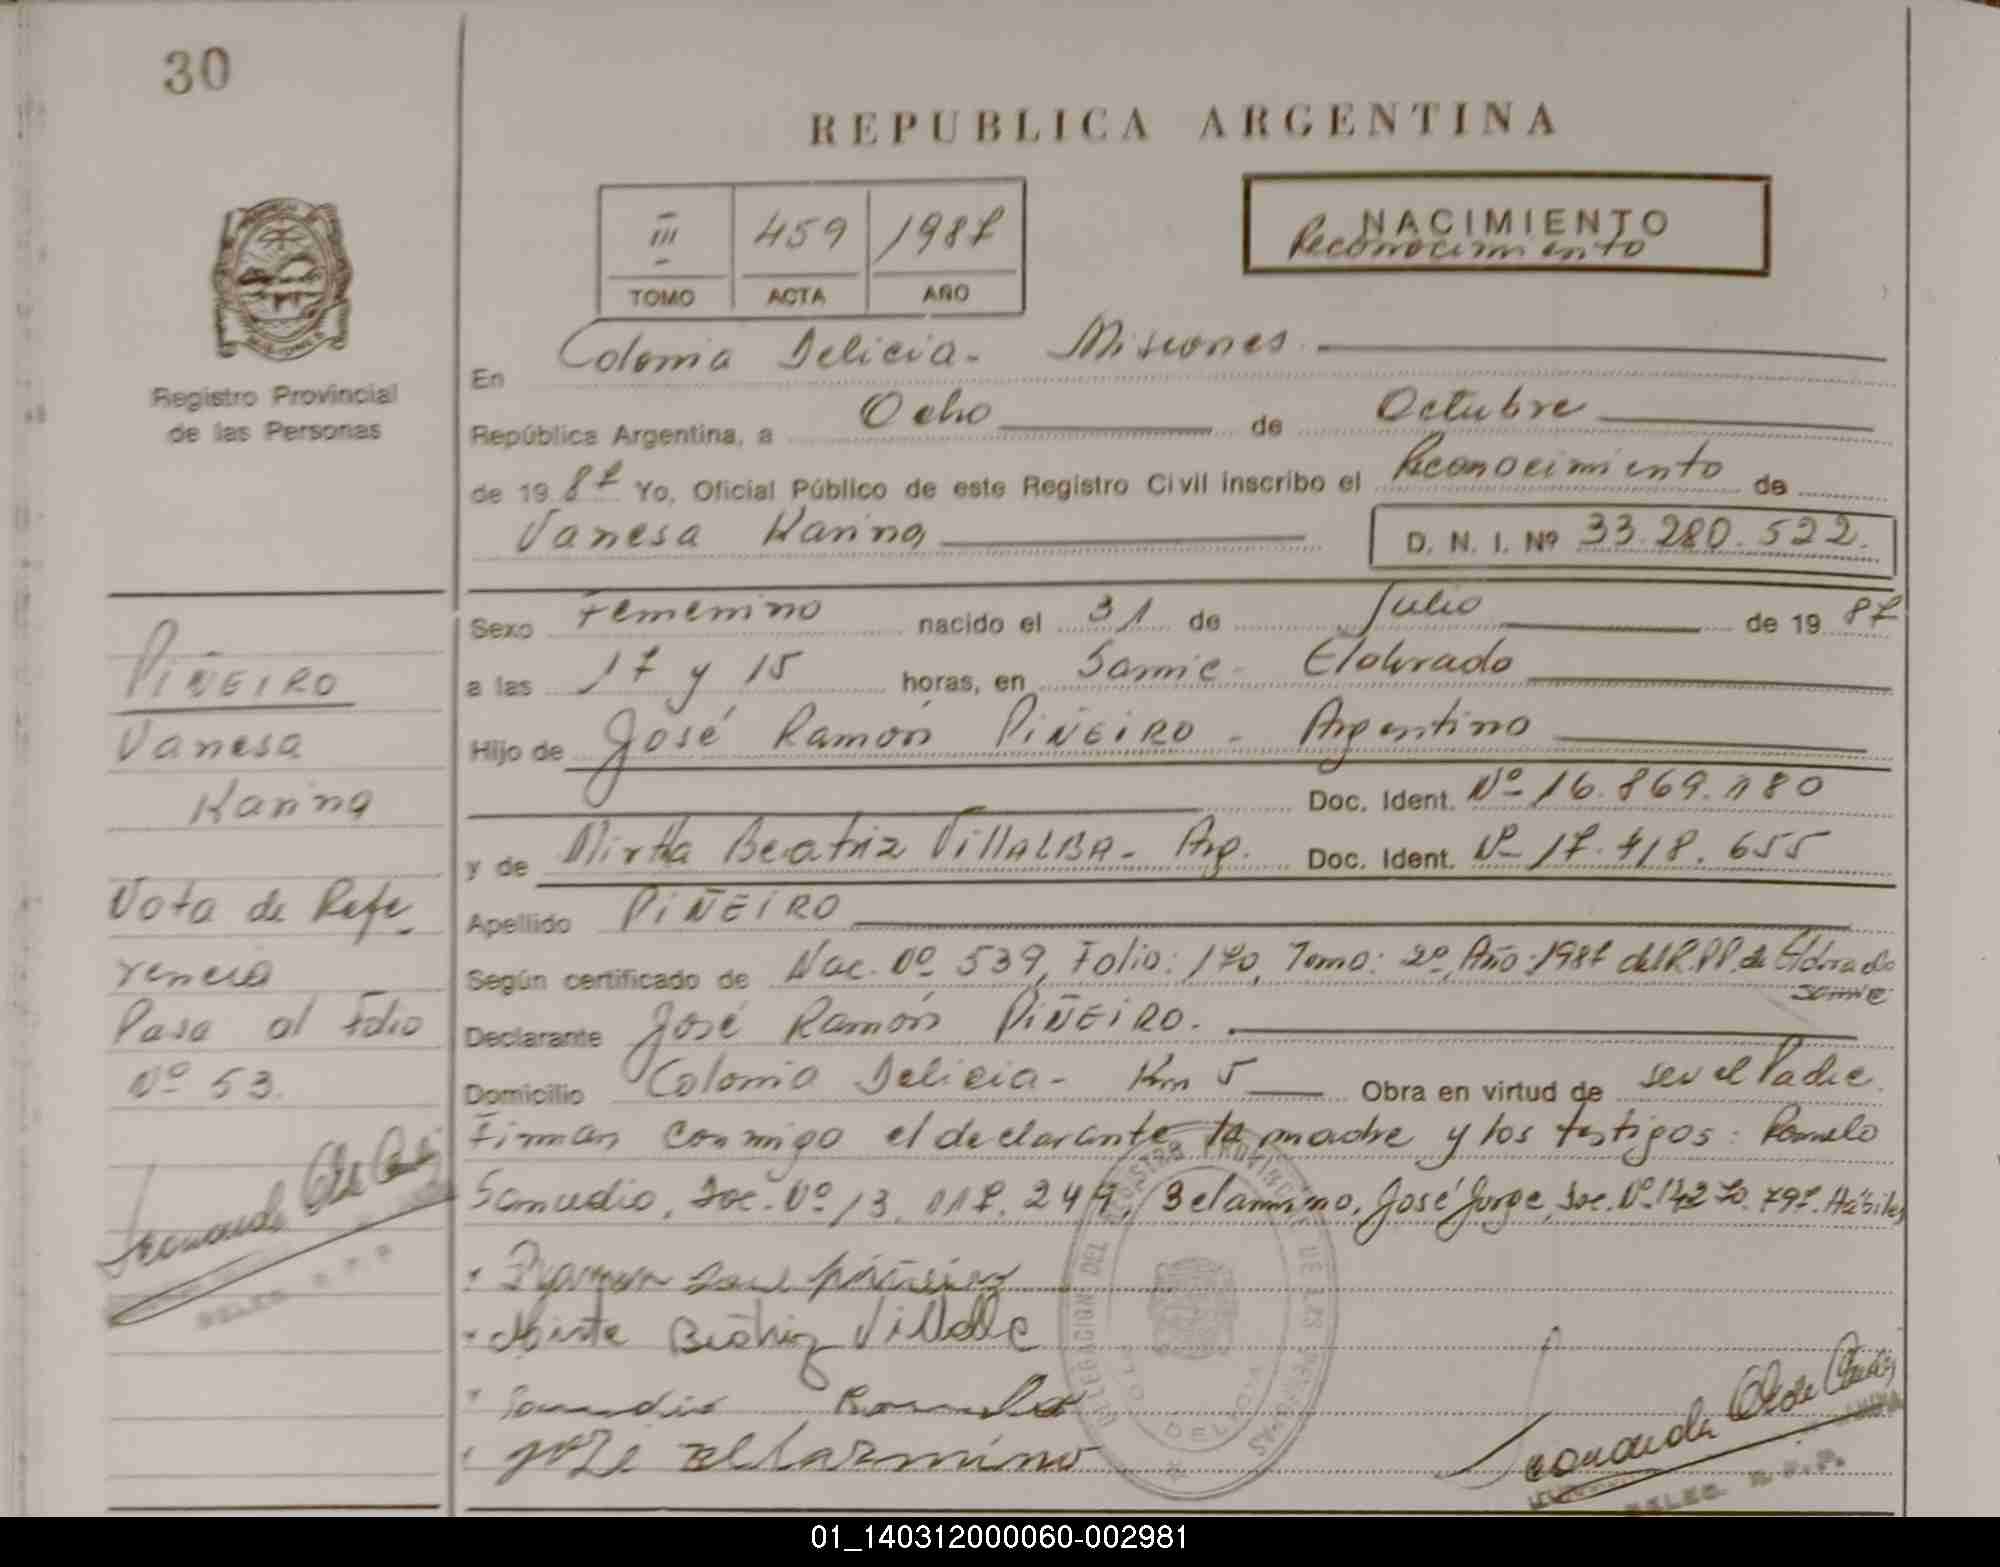 30
REPUBLICA ARGENTINA
III 459 1987
TOMO ACTA AÑO
NACIMIENTO
Reconocimiento
Registro Provincial
de las Personas
En Colonia Delicia - Misiones
República Argentina, a Ocho de Octubre
de 19 87 Yo, Oficial Público de este Registro Civil inscribo el Reconocimiento de
Vanesa Karina D. N. I. Nº 33.280.522.
Sexo Femenino nacido el 31 de Julio de 19 87
a las 17 y 15 horas, en Samic - Eldorado
Hijo de José Ramón PIÑEIRO - Argentino
Doc. Ident. Nº 16.869.180
y de Mirtha Beatriz VILLALBA - Arg. Doc. Ident. Nº 17.418.655
Apellido PIÑEIRO
Según certificado de Nac. Nº 539, Folio: 170, Tomo: 2º, Año: 1987 del R.P.P. de Eldorado
Samic
Declarante José Ramón PIÑEIRO.
Domicilio Colonia Delicia - Km 5 Obra en virtud de ser el Padre.
Firman conmigo el declarante la madre y los testigos: Romulo
Samudio, Doc. Nº 13.117.247, Belarmino, José Jorge, Doc. Nº Hábiles
PIÑEIRO
Vanesa
Karina
Nota de Refe
rencia
Pasa al Folio
Nº 53.
Mirta Beatriz Villalba
Samudio Romulo
José Belarmino
DELEGACION DEL REGISTRO PROVINCIAL DE LAS PERSONAS
DELICIA
DELEG. R.P.P.
DELEG. R.P.P.
01_140312000060-002981